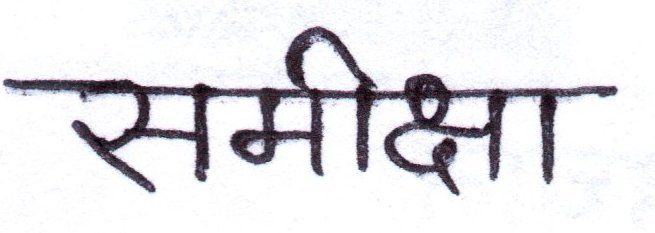 समीक्षा